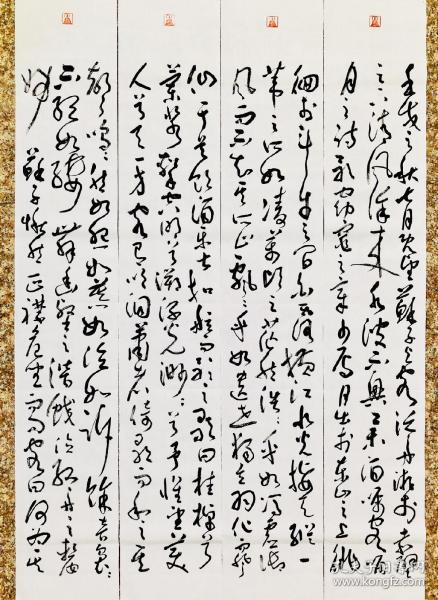 壬戌之秋七月既望苏子与客泛舟游于赤壁
之下清风徐来水波不兴举酒属客诵明
月之诗歌窈窕之章少焉月出于东山之上徘
徊于斗牛之间白露横江水光接天纵一
苇之所如凌万顷之茫然浩浩乎如冯虚御
风而不知其所止飘飘乎如遗世独立羽化而登
仙于是饮酒乐甚扣舷而歌之歌曰桂棹兮
兰桨击空明兮溯流光渺渺兮予怀望美
人兮天一方客有吹洞箫者倚歌而和之其
声呜呜然如怨如慕如泣如诉余音袅袅
不绝如缕舞幽壑之潜蛟泣孤舟之嫠
妇苏子愀然正襟危坐而问客曰何为其
孔夫子旧书网
www.kongfz.com